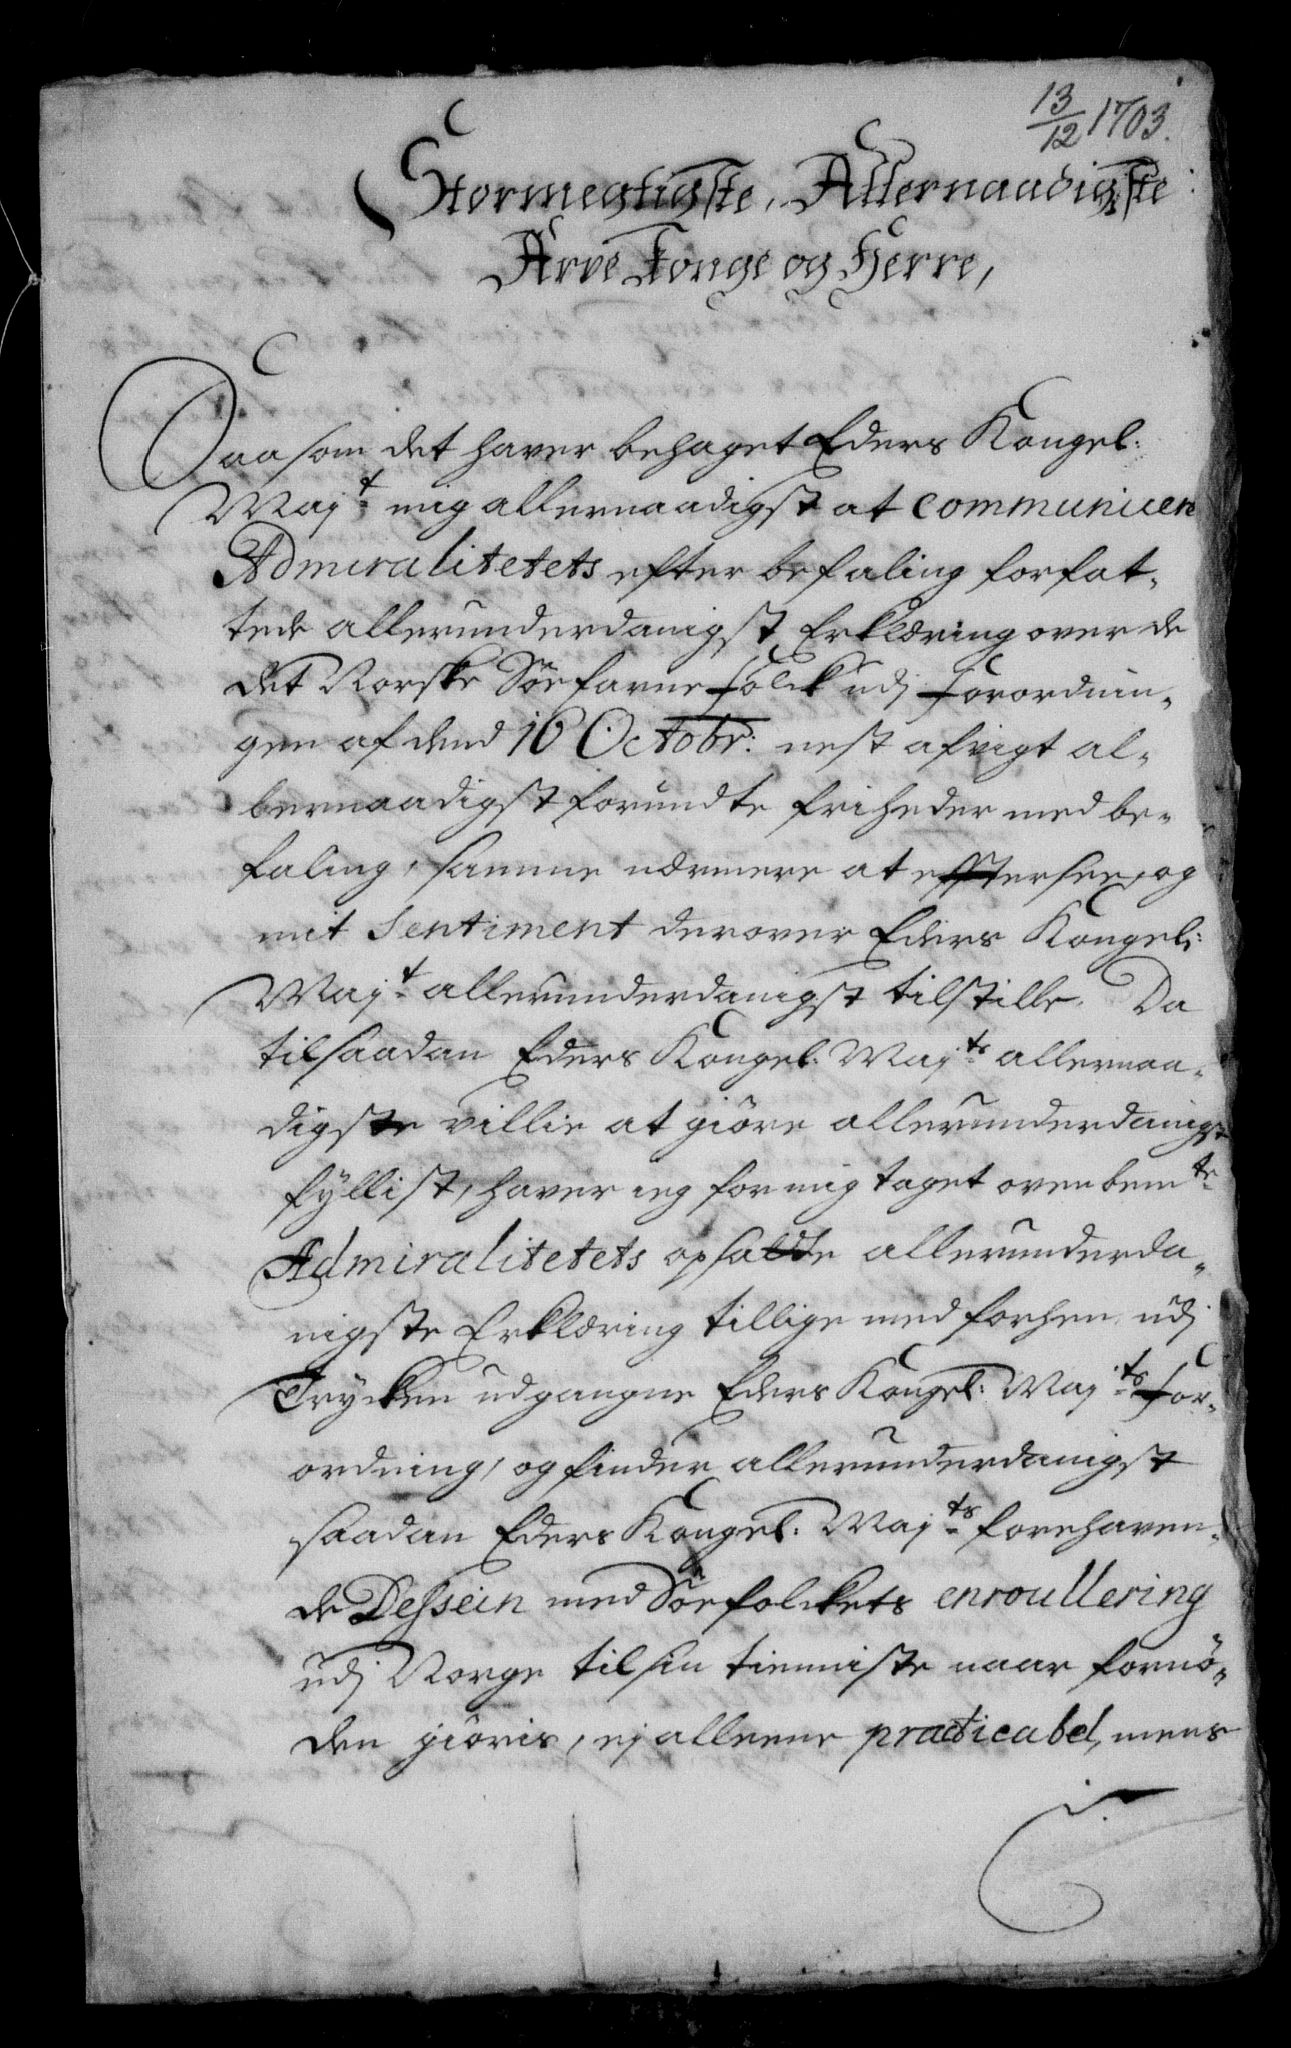 13/12 1703.
Stormegtigste, Allernaadigste
Arve Konge og Herre,
Saasom det haver behaget Eders Kongel:
Majt: mig allernaadigst at communicere
Admiralitetets efter befaling forfat-
tede allerunderdanigst Erklæring over de
det Norske Söefarne folck udj forordnin-
gen af dend 16 Octobr: nest afvigt al-
lernaadigst forundte friheder med be-
faling, samme nærmere at efftersee, og
mit Sentiment derover Eders Kongel:
Majt: allerunderdanigst tilstille. Da
til saadan Eders Kongel: Majts: allernaa-
digste villie at giöre allerunderdanigst
fyllist, haver ieg for mig taget ovenbemte:
Admiralitetets opsatte allerunderda-
nigste Erklæring tillige med forhen udj
Trycken udgangne Eders Kongel: Majts: for-
ordning, og finder allerunderdanigst
saadan Eders Kongel: Majts: forehaven-
de Dessein med Söefolckets enroullering
udj Norge til sin tienniste naar fornö-
den giöris, ej alleene practicabel, mens